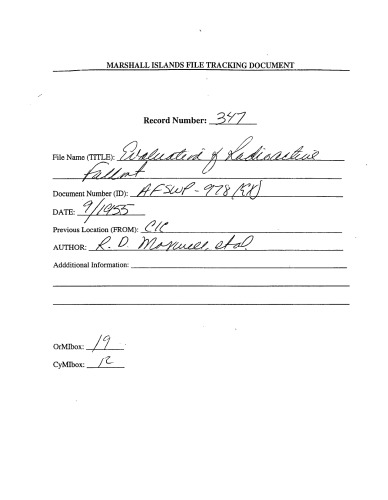 MARSHALL ISLANDS FILE TRACKING DOCUMENT
Record Number: 347
File Name (TITLE): Evaluation of Radioactive
Fallout
Document Number (ID): AFSWP-978 (EX)
DATE: 9/1955
Previous Location (FROM): CIC
AUTHOR: R. D. Maxwell, et al.
Addditional Information:
OrMIbox: 19
CyMIbox: 12